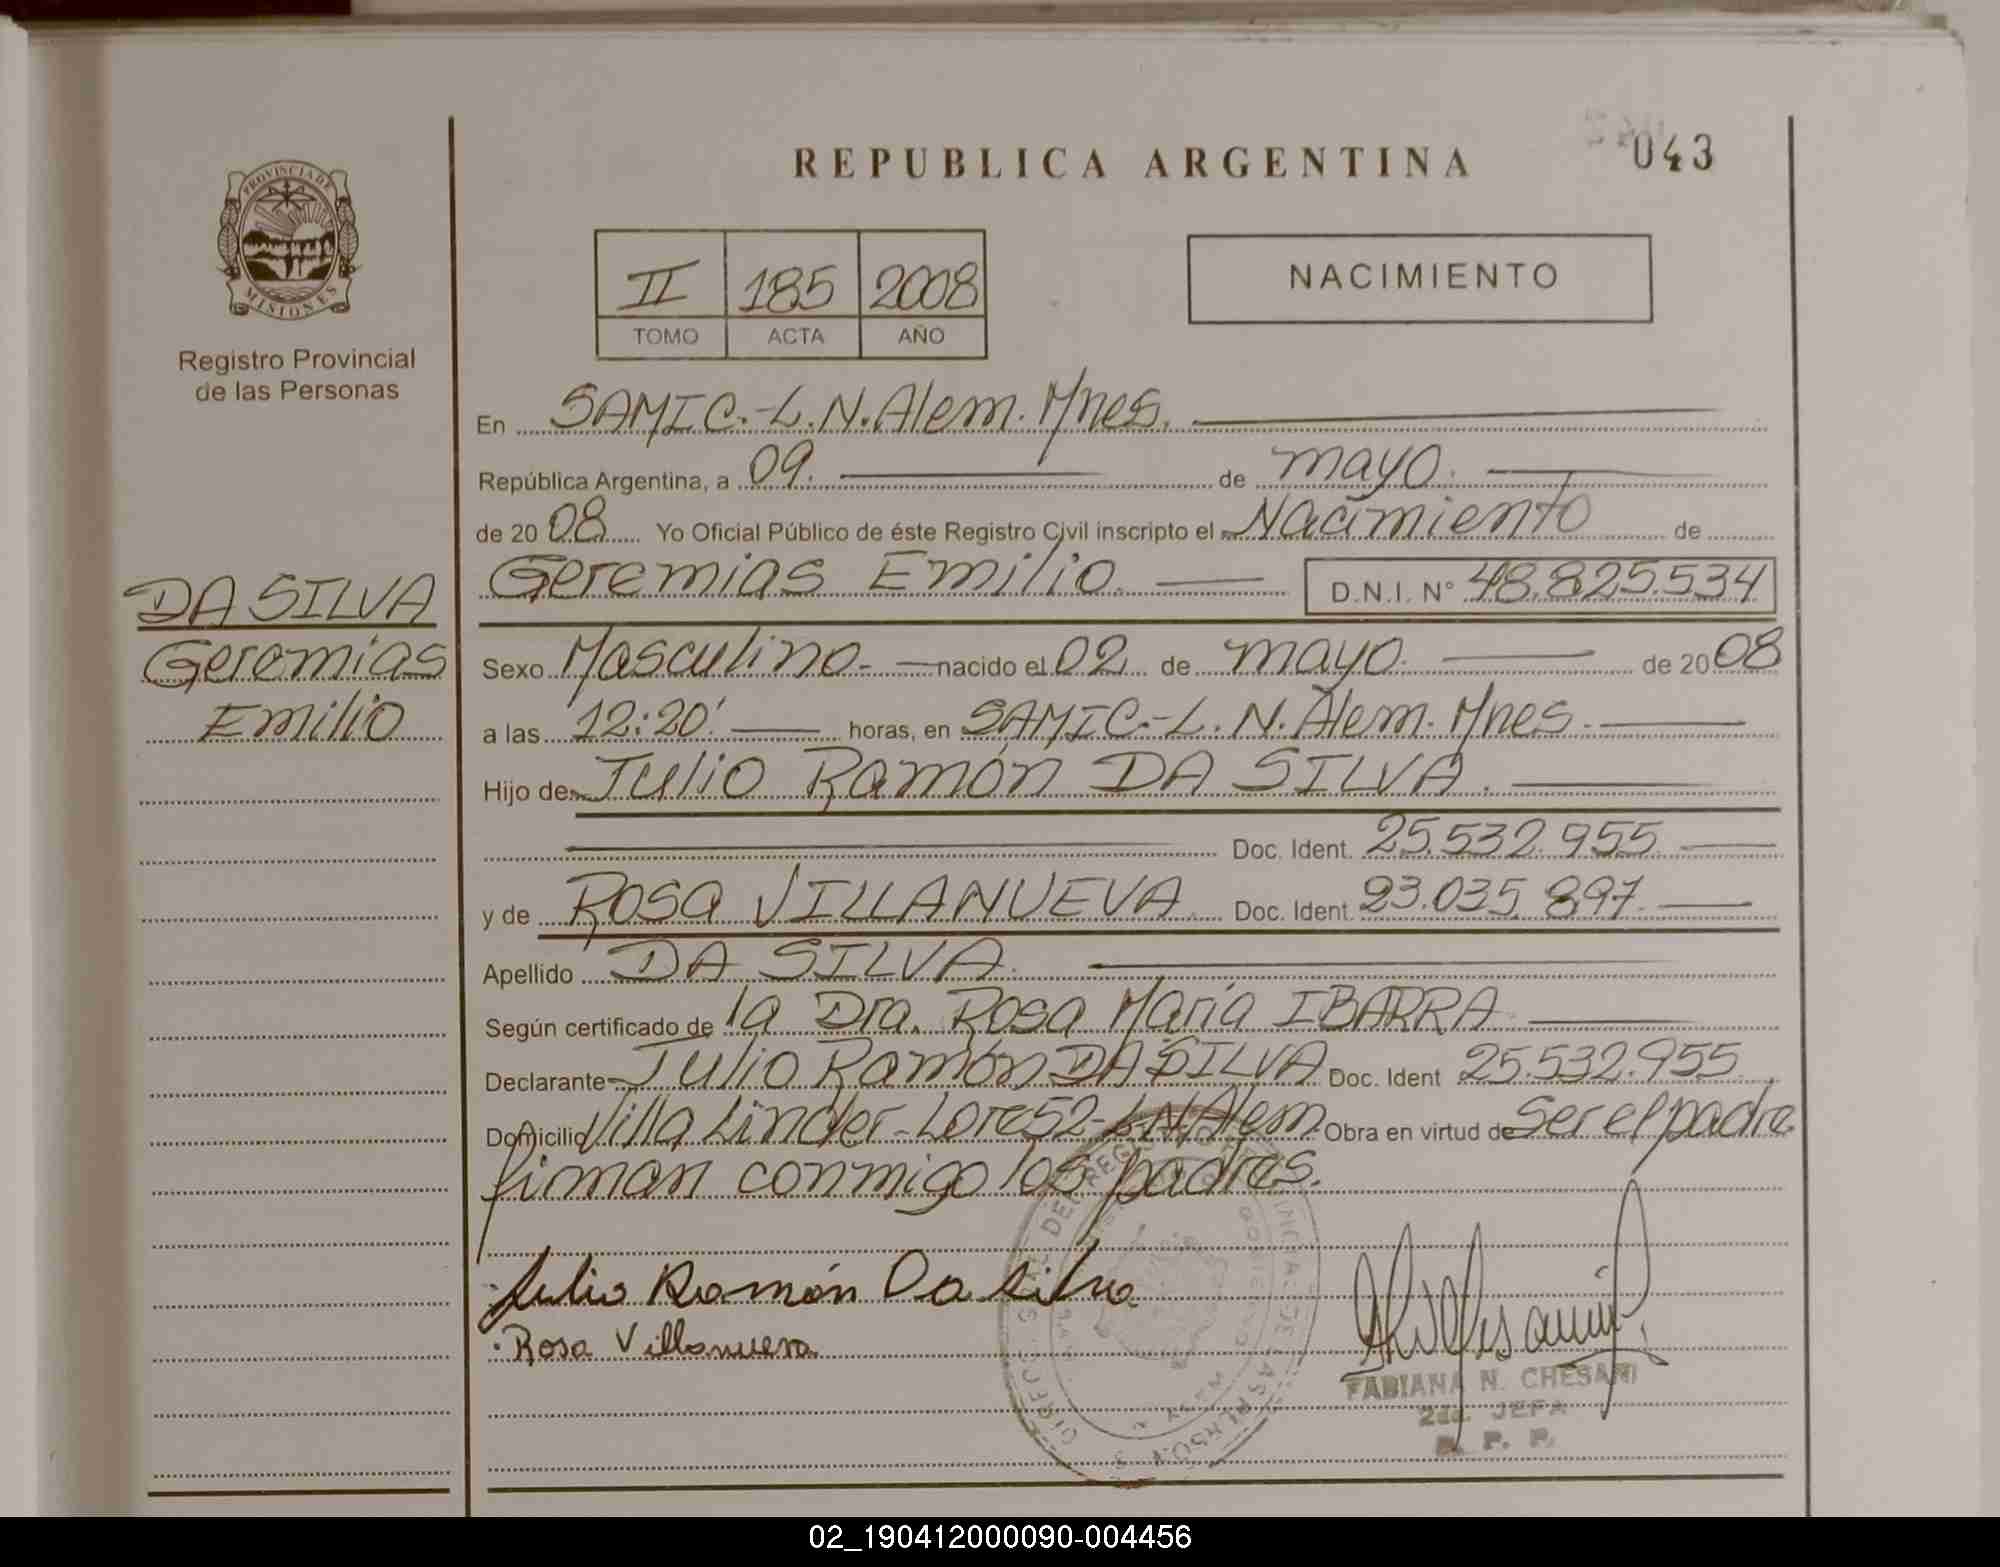 REPUBLICA ARGENTINA
043
PROVINCIA DE
MISIONES
Registro Provincial
de las Personas
II 185 2008
TOMO ACTA AÑO
NACIMIENTO
En SAMIC.-L.N.Alem.Mnes.
República Argentina, a 09. de mayo.
de 2008 Yo Oficial Público de éste Registro Civil inscripto el Nacimiento de
Geremias Emilio. D.N.I. Nº 48.825.534
DA SILVA
Geremias
Emilio
Sexo Masculino.- nacido el 02 de mayo. de 2008
a las 12:20' horas, en SAMIC.-L.N.Alem.Mnes.
Hijo de Julio Ramón DA SILVA.
Doc. Ident. 25.532.955
y de Rosa VILLANUEVA Doc. Ident. 23.035.897.
Apellido DA SILVA.
Según certificado de la Dra. Rosa María IBARRA
Declarante Julio Ramón DA SILVA Doc. Ident 25.532.955
Domicilio Villa Linder-Lote52-L.N.Alem. Obra en virtud de Ser el padre.
firman conmigo los padres.
Julio Ramón Da silva
Rosa Villanueva
FABIANA N. CHESANI
2da. JEFA
R. P. P.
02_190412000090-004456